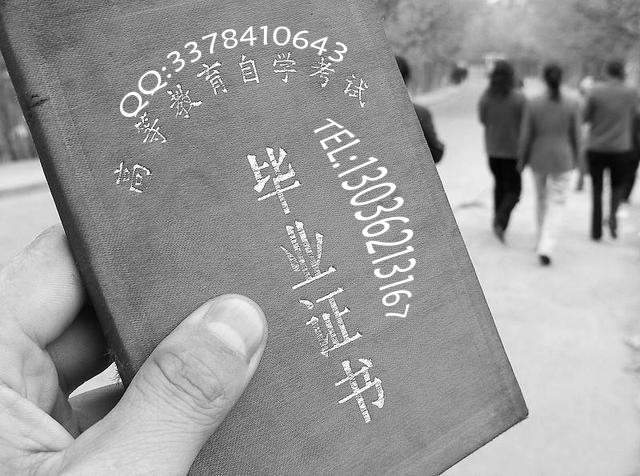 QQ:3378410643
高等教育自学考试
TEL:13036213167
毕业证书